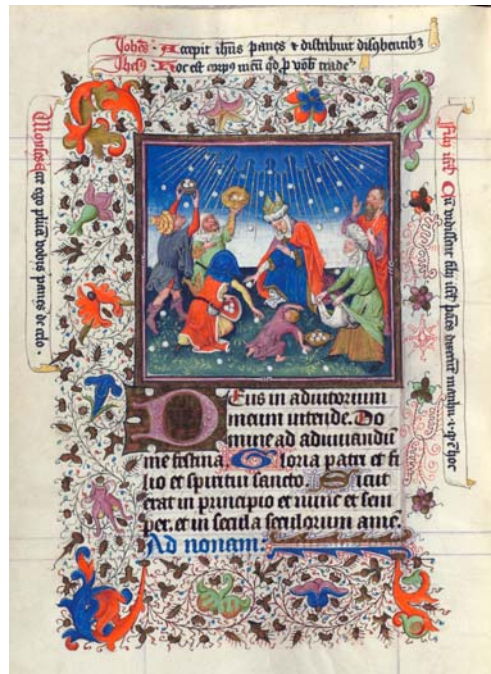 Johes · Accepit ihus panes & distribuit
Hoc est corpus meū qd p vob tradet
Moyses ego pluā vobis panes de celo ·
Filii isrl vidissent filii isrl manhu ·i· hoc
Deus in adiutorium
meum intende. Do
mine ad adiuuandū
me festina. Gloria patri et fi
lio et spiritui sancto. Sicut
erat in principio et nunc et sem
per. et in secula seculorum amē.
Ad nonam: